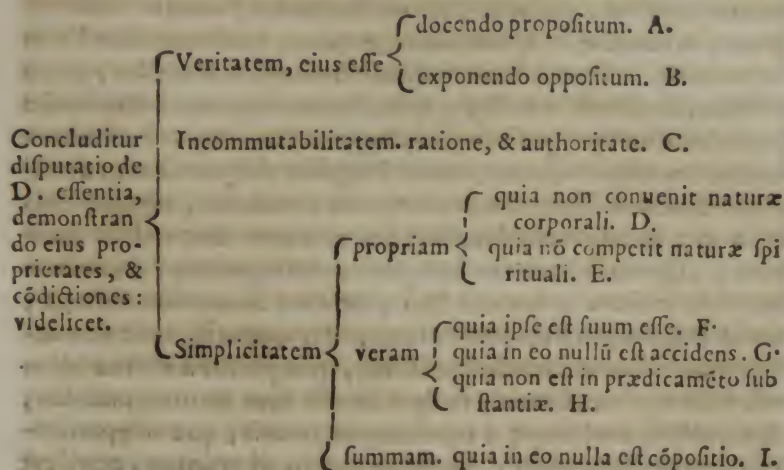 Concluditur
disputatio de
D. essentia,
demonstran
do eius pro-
prietates, &
cōdictiones:
videlicet.
Veritatem, eius esse
docendo propositum. A.
exponendo oppositum. B.
Incommutabilitatem. ratione, & authoritate. C.
Simplicitatem
propriam
quia non conuenit naturæ
corporali. D.
quia nō competit naturæ spi
rituali. E.
veram
quia ipse est suum esse. F.
quia in eo nullū est accidens. G.
quia non est in prædicamēto sub
stantiæ. H.
summam. quia in eo nulla est cōpositio. I.